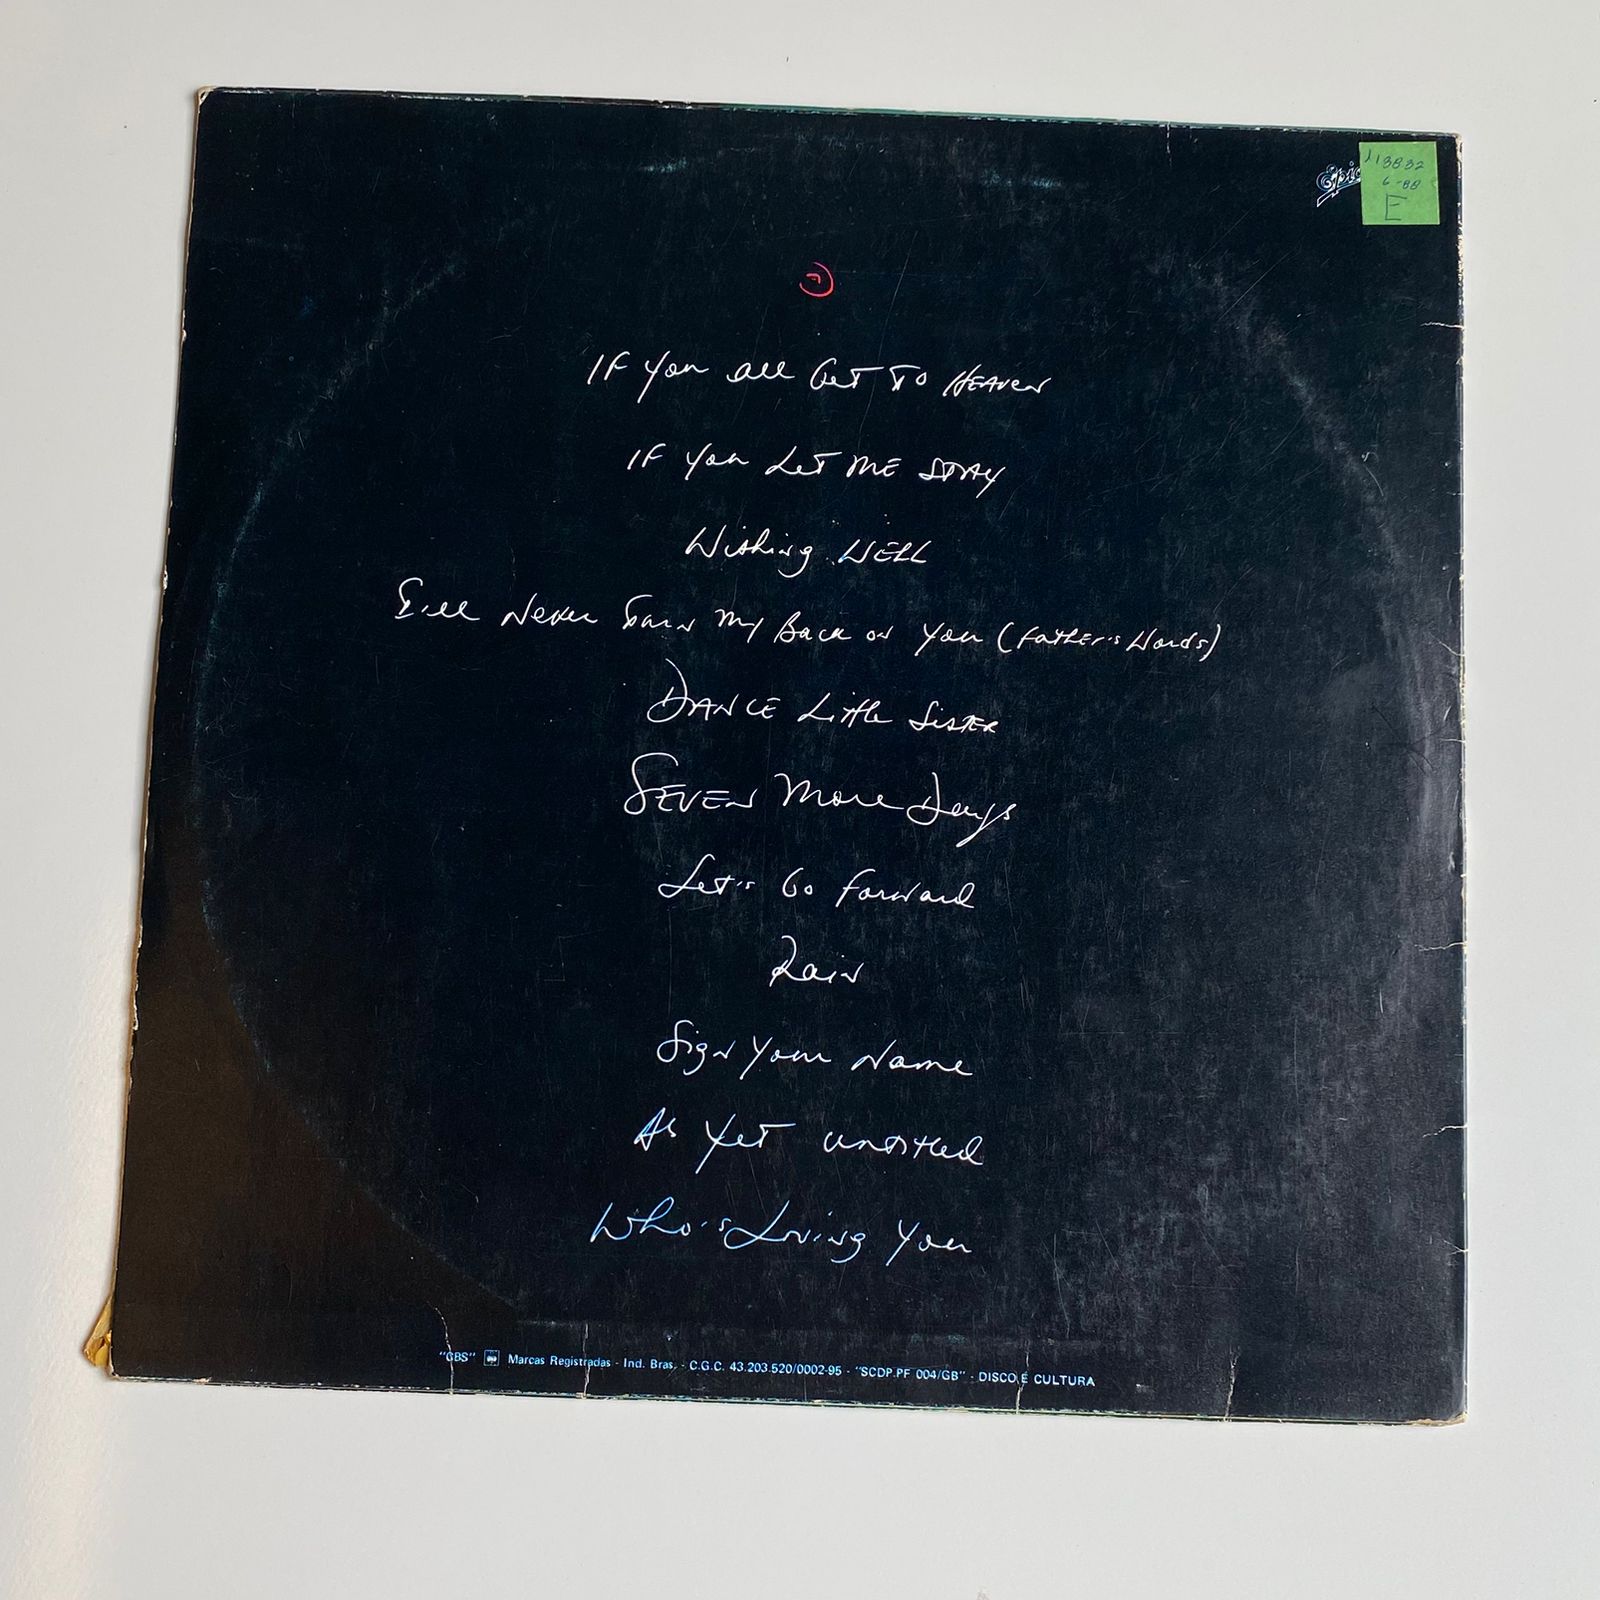 Epic
113832
6-88
E
If You All Get To Heaven
If You Let Me Stay
Wishing Well
I'll Never Turn My Back on You (Father's Words)
Dance Little Sister
Seven More Days
Let's Go Forward
Rain
Sign Your Name
As Yet Untitled
Who's Loving You
"CBS" Marcas Registradas - Ind. Bras. - C.G.C. 43.203.520/0002-95 - "SCDP.PF 004/GB" - DISCO É CULTURA